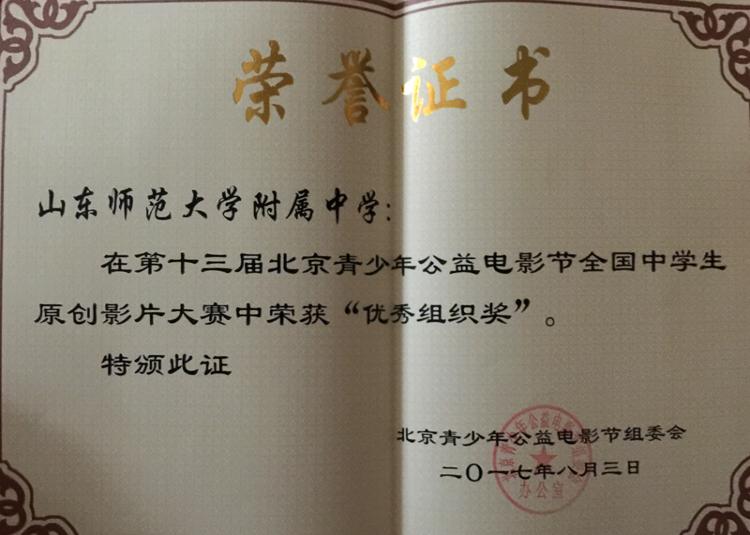 荣誉证书
山东师范大学附属中学：
在第十三届北京青少年公益电影节全国中学生
原创影片大赛中荣获“优秀组织奖”。
特颁此证
北京青少年公益电影节组委会
二〇一七年八月三日
办公室